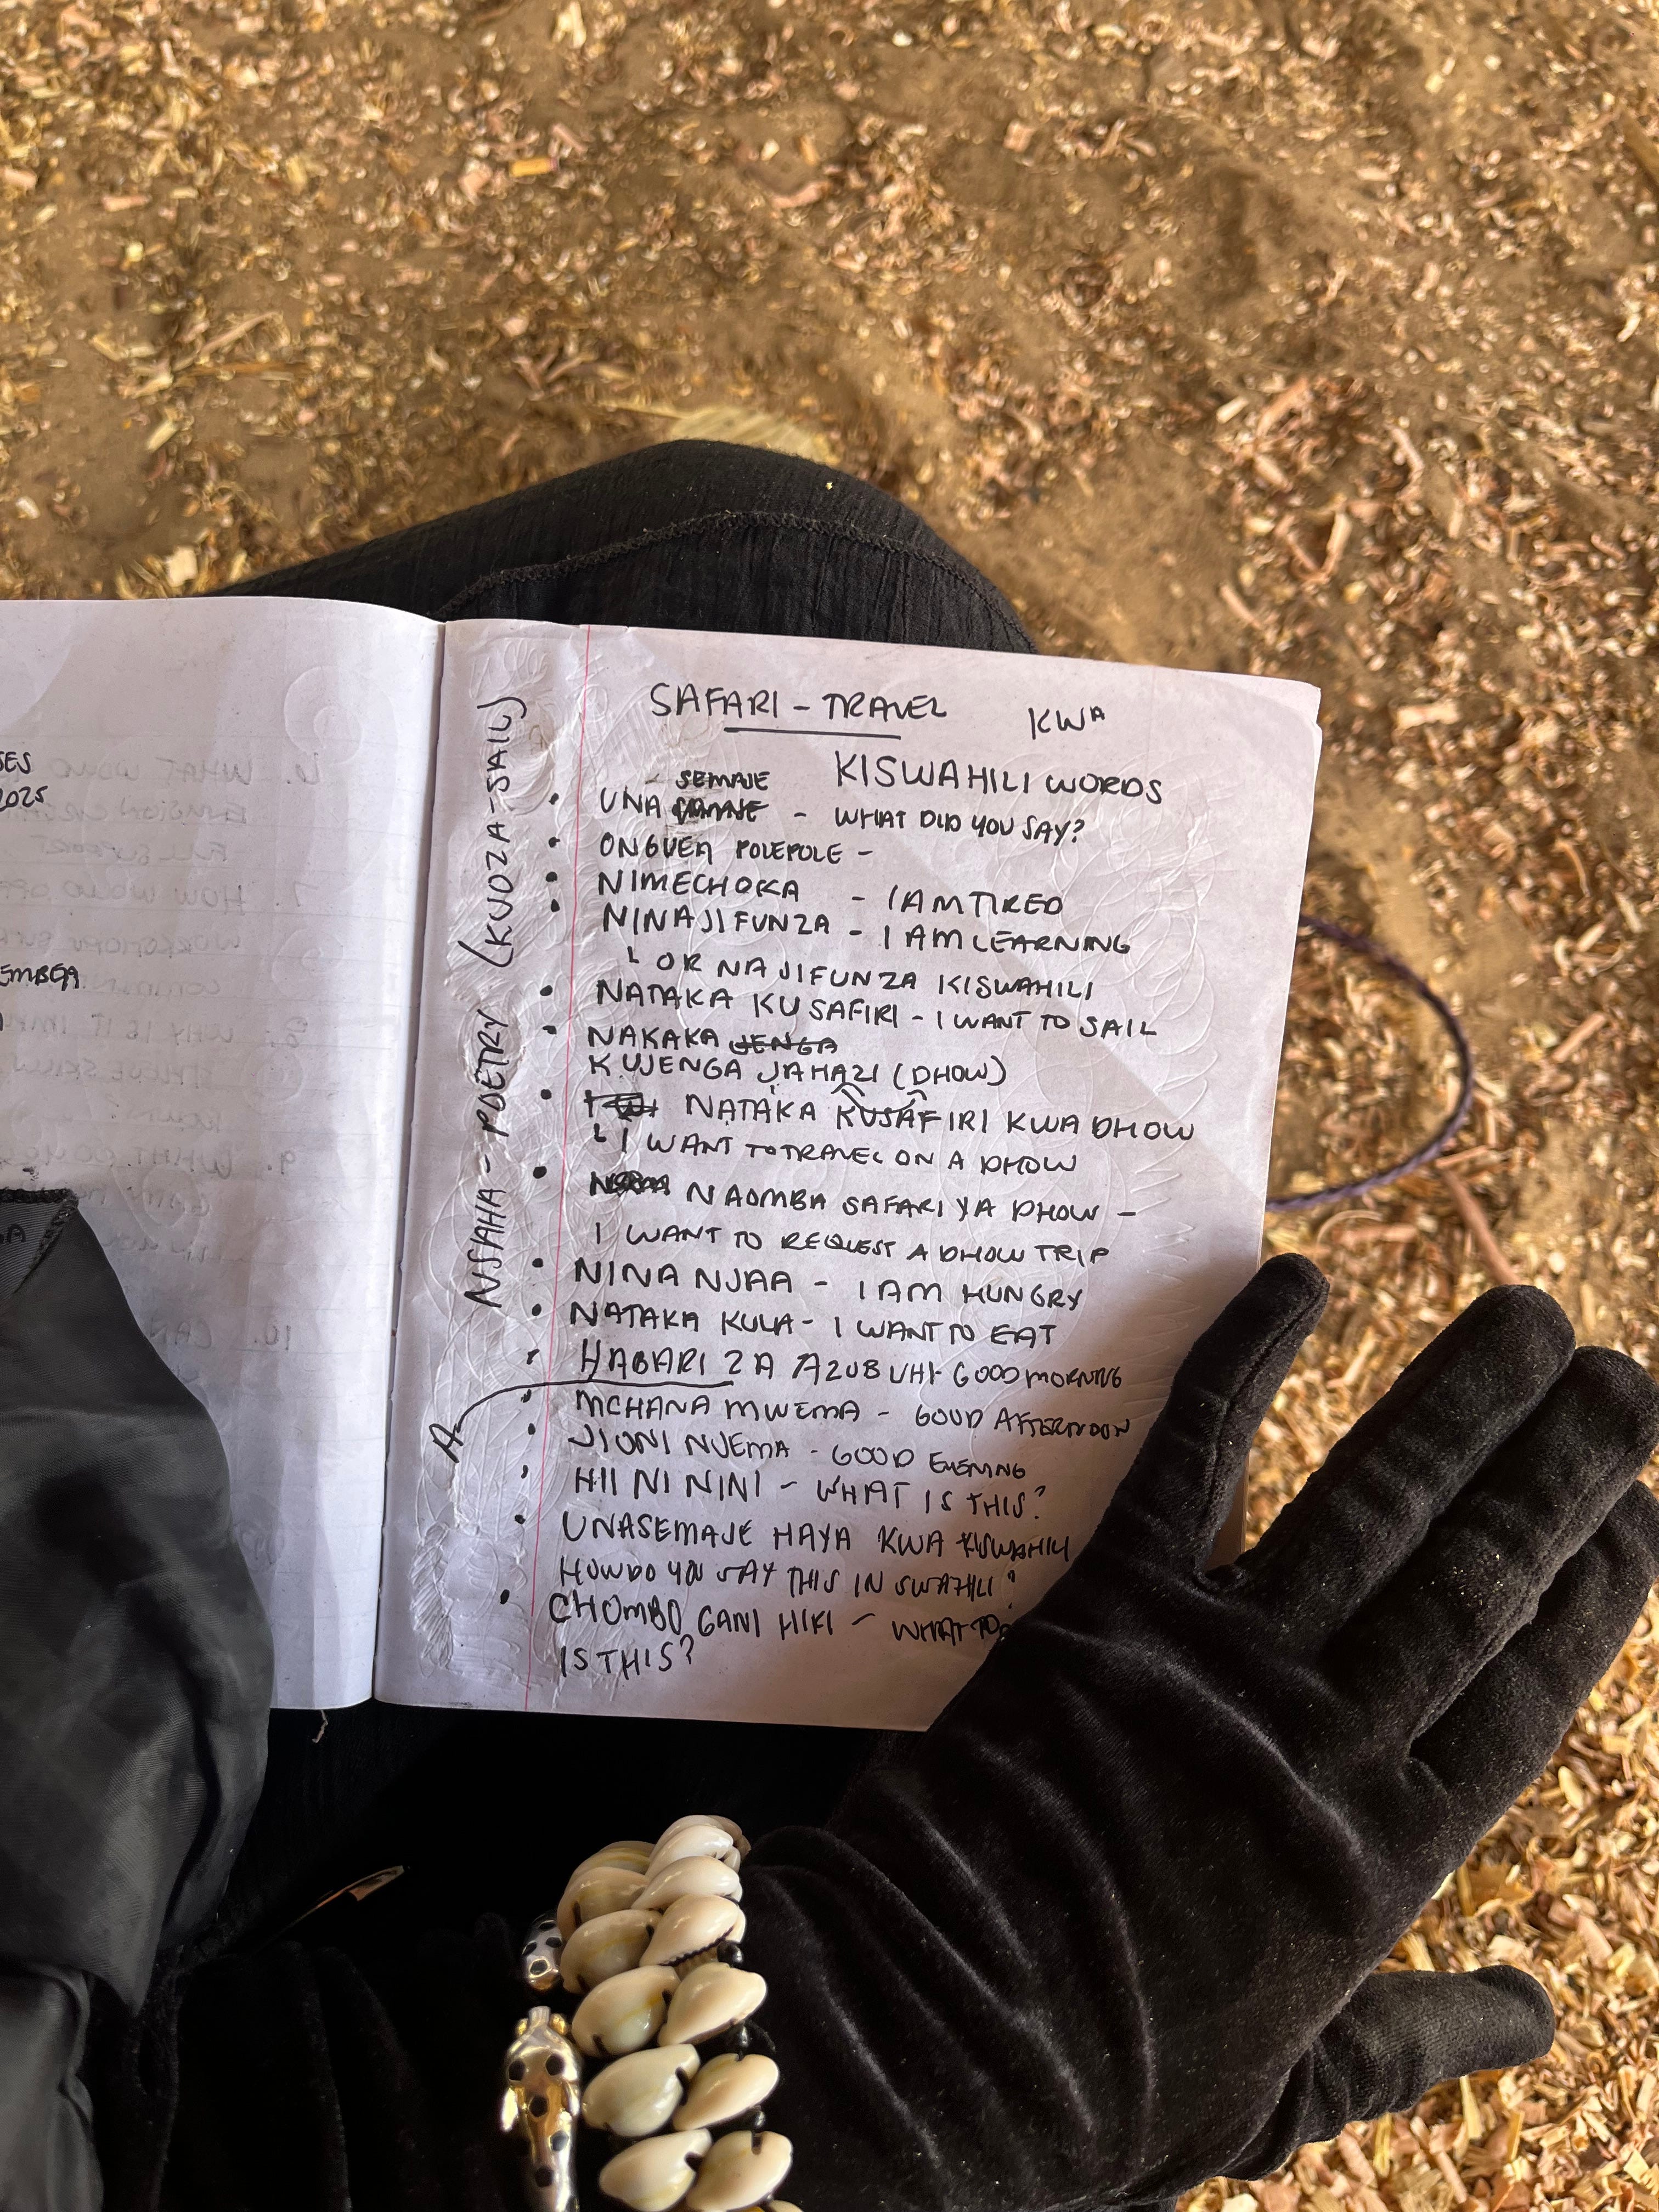 SES
2025
EMBEA
SAFARI - TRAVEL
KWA
KISWAHILI WORDS
- SEMAJE
UNA - WHAT DID YOU SAY?
ONGUEA POLEPOLE -
NIMECHOKA - I AM TIRED
NINAJIFUNZA - I AM LEARNING
OR NAJIFUNZA KISWAHILI
NATAKA KUSAFIRI - I WANT TO SAIL
NAKAKA JENGA
KUJENGA JAHAZI (DHOW)
NATAKA KUSAFIRI KWA DHOW
I WANT TO TRAVEL ON A DHOW
NAOMBA SAFARI YA DHOW -
I WANT TO REQUEST A DHOW TRIP
NINA NJAA - I AM HUNGRY
NATAKA KULA - I WANT TO EAT
HABARI ZA AZUBUHI - GOOD MORNING
MCHANA MWEMA - GOOD AFTERNOON
JIONI NJEMA - GOOD EVENING
HII NI NINI - WHAT IS THIS?
UNASEMAJE HAYA KWA KISWAHILI
HOW DO YOU SAY THIS IN SWAHILI?
CHOMBO GANI HIKI - WHAT
IS THIS?
- POETRY (KUOZA - SAIL)
A